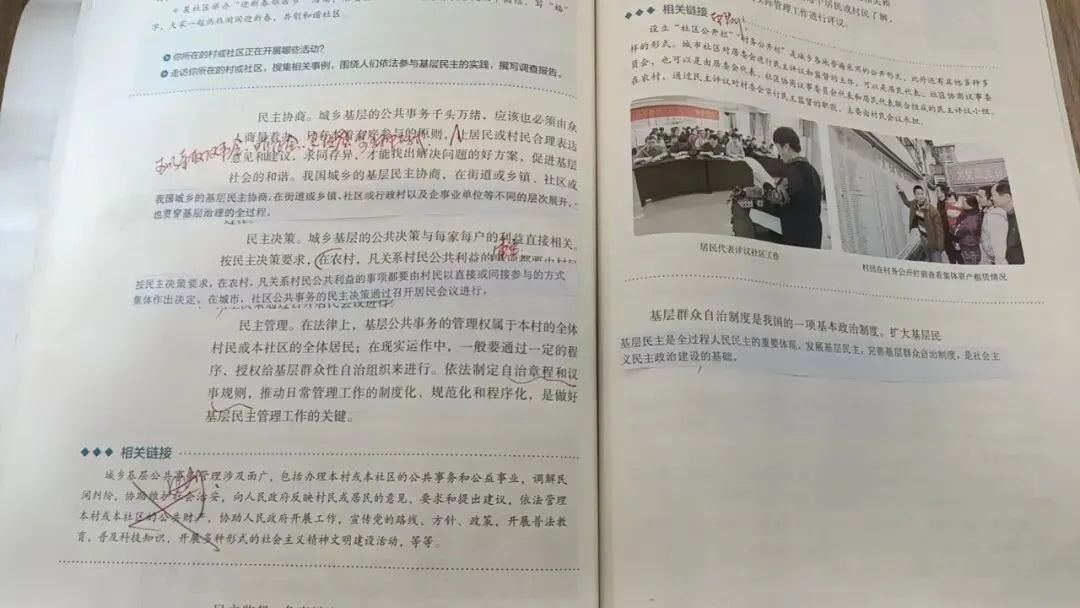 某社区举办"迎新春邻居节"
字，大家一起热热闹闹迎新春，共创和谐社区。
你所在的村或社区正在开展哪些活动？
走访你所在的村或社区，搜集相关事例，围绕人们依法参与基层民主的实践，撰写调查报告。
民主协商。城乡基层的公共事务千头万绪，应该也必须由众
人商量着办。只有 参与的原则，让居民或村民合理表达
意见和建议，求同存异，才能找出解决问题的好方案，促进基层
社会的和谐。我国城乡的基层民主协商，在街道或乡镇、社区或
我国城乡的基层民主协商，在街道或乡镇、社区或行政村以及企事业单位等不同的层次展开，
也贯穿基层治理的全过程。
民主决策。城乡基层的公共决策与每家每户的利益直接相关。
按民主决策要求，在农村，凡关系村民公共利益的 都要由村民
按民主决策要求，在农村，凡关系村民公共利益的事项都要由村民以直接或间接参与的方式
集体作出决定。在城市，社区公共事务的民主决策通过召开居民会议进行。
民主管理。在法律上，基层公共事务的管理权属于本村的全体
村民或本社区的全体居民；在现实运作中，一般要通过一定的程
序，授权给基层群众性自治组织来进行。依法制定自治章程和议
事规则，推动日常管理工作的制度化、规范化和程序化，是做好
基层民主管理工作的关键。
相关链接
城乡基层公共 管理涉及面广，包括办理本村或本社区的公共事务和公益事业，调解民
间纠纷，协助维护社会治安，向人民政府反映村民或居民的意见、要求和提出建议，依法管理
本村或本社区的公共财产，协助人民政府开展工作，宣传党的路线、方针、政策，开展普法教
育，普及科技知识，开展多种形式的社会主义精神文明建设活动，等等。
际管理工作进行评议。
相关链接
设立"社区公开栏""村务公开栏"是城乡各地普遍采用的公开形式，此外还有其他多种多
样的形式。城市社区对居委会进行民主评议和监督的主体，可以是居民代表、社区协商议事委
员会，也可以是由居委会代表、社区协商议事委员会代表和居民代表联合组成的民主评议小组。
在农村，通过民主评议对村委会实行民主监督的职能，主要由村民会议承担。
居民代表评议社区工作
村民在村务公开栏前查看集体资产租赁情况
基层群众自治制度是我国的一项基本政治制度。扩大基层民
基层民主是全过程人民民主的重要体现，发展基层民主，完善基层群众自治制度，是社会主
义民主政治建设的基础。